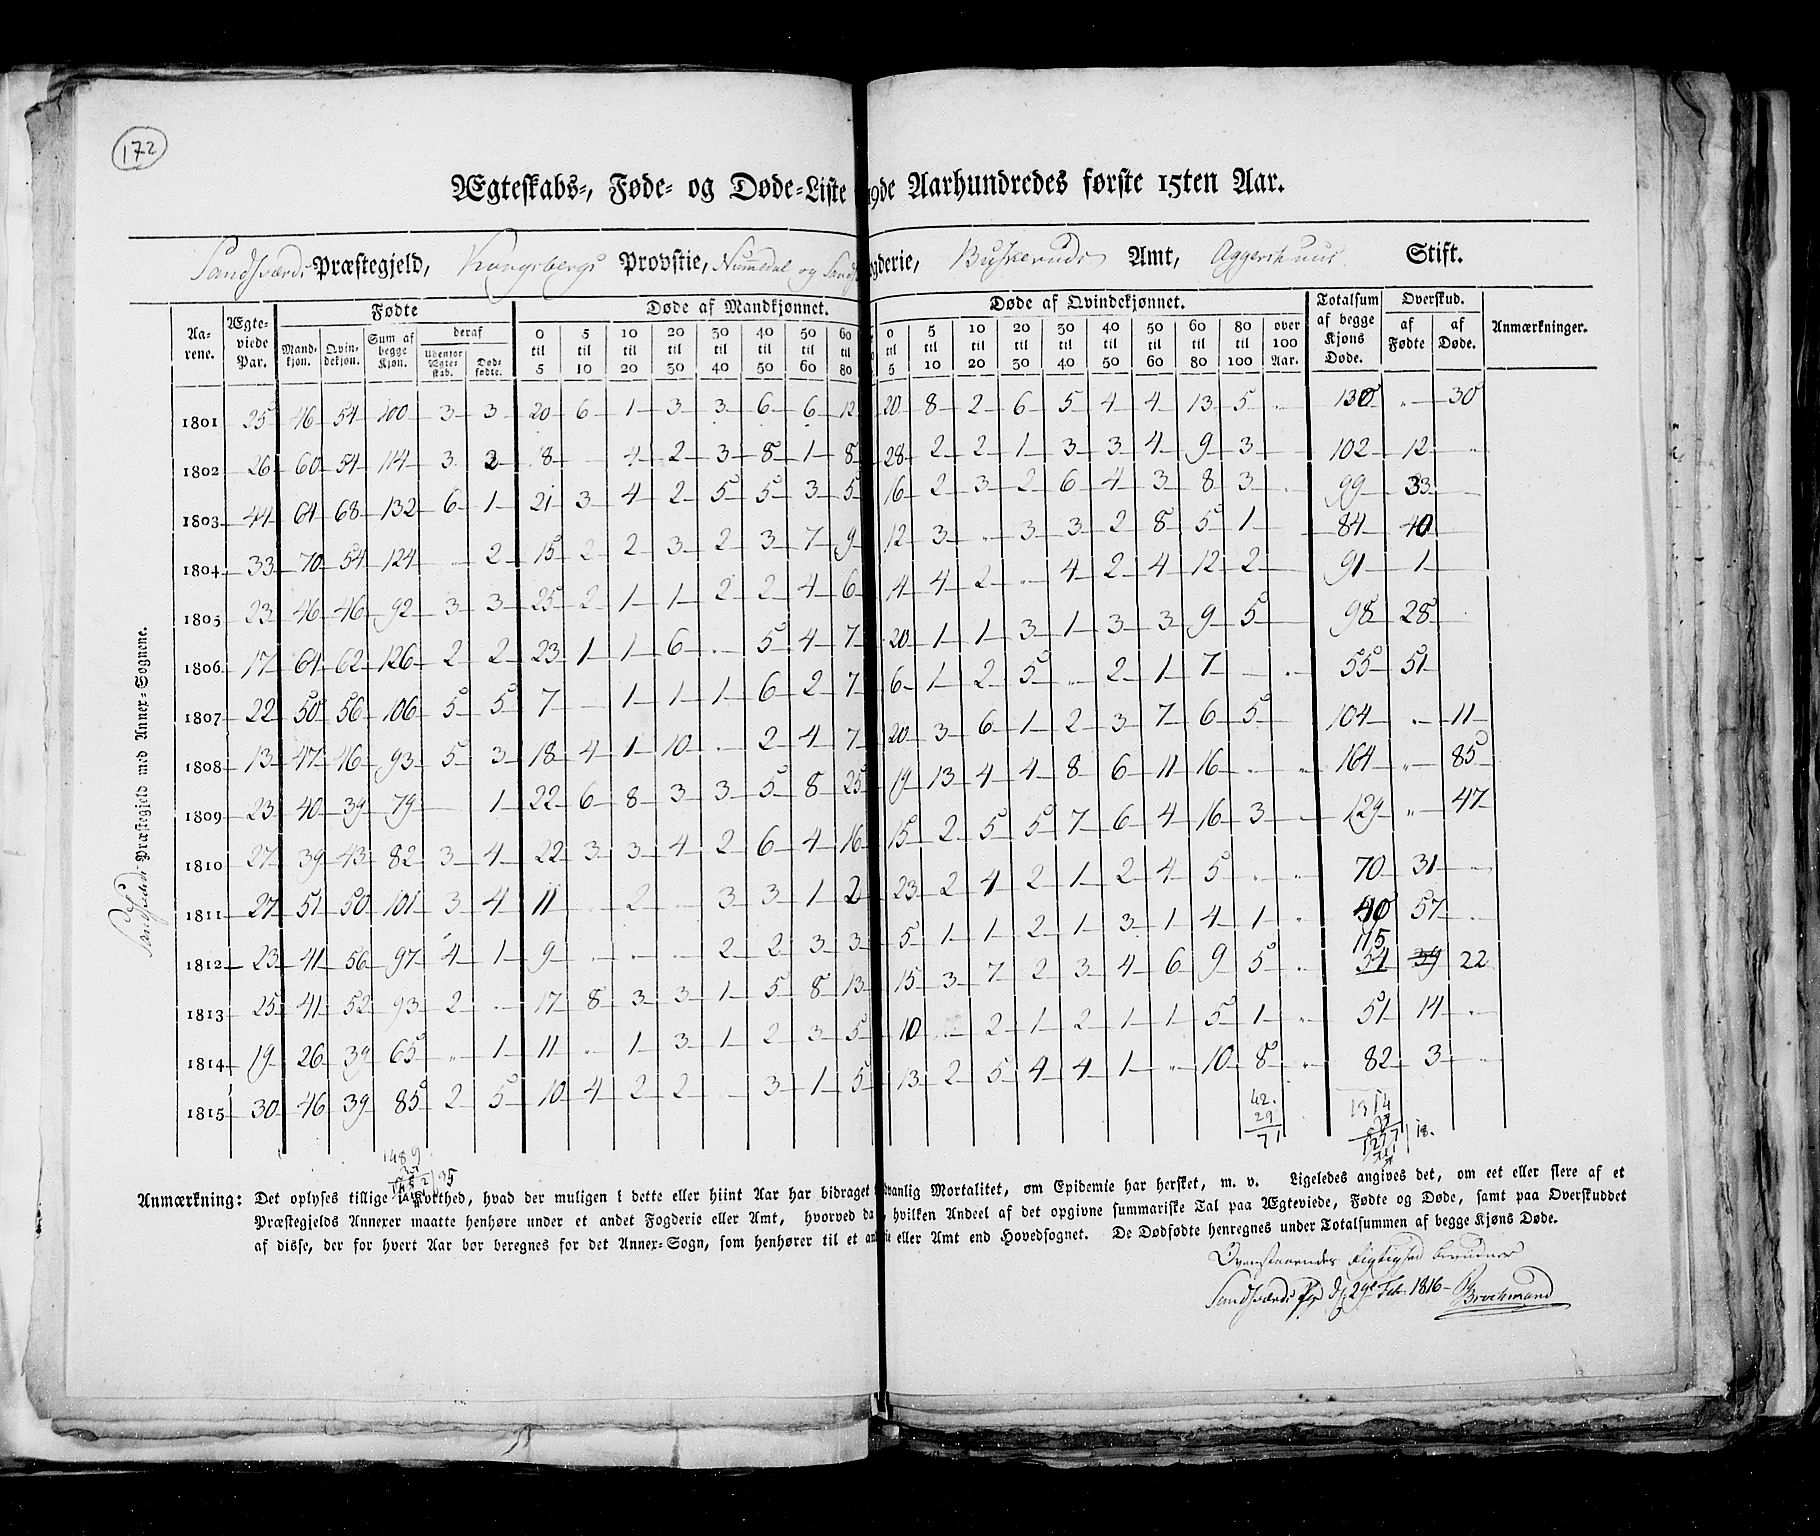 172
Ægteskabs-, Føde- og Døde-Liste 19de Aarhundredes første 15ten Aar.
Sandsværds Præstegjeld, Kongsbergs Provstie, Numedal og Sands ogderie, Buskeruds Amt, Aggershuus Stift.
Aa-rene. Ægte-viede Par. Fødte Døde af Mandkjønnet. Døde af Qvindekjønnet. Totalsum af begge Kjøns Døde. Overskud. Anmærkninger.
Mand-kjøn. Qvin-dekjøn. Sum af begge Kjøn. deraf Udenfor Ægte-skab. Døde fødte. af Fødte af Døde.
0 til 5 5 til 10 10 til 20 20 til 30 30 til 40 40 til 50 50 til 60 60 til 80 0 til 5 5 til 10 10 til 20 20 til 30 30 til 40 40 til 50 50 til 60 60 til 80 80 til 100 over 100 Aar.
1801 35 46 54 100 3 3 20 6 1 3 3 6 6 12 20 8 2 6 5 4 4 13 5 „ 130 „ 30
1802 26 60 54 114 3 2 18 4 2 3 8 1 8 28 2 2 1 3 3 4 9 3 102 12 „
1803 44 64 68 132 6 1 21 3 4 2 5 5 3 5 16 2 3 2 6 4 3 8 3 99 33
1804 33 70 54 124 „ 2 15 2 2 3 2 3 7 9 12 3 „ 3 3 2 8 5 1 84 40
1805 23 46 46 92 3 3 25 2 1 1 2 2 4 6 4 4 2 „ 4 2 4 12 2 91 1
1806 17 64 62 126 2 2 23 1 1 6 „ 5 4 7 20 1 1 3 1 3 3 9 5 98 28
1807 22 50 56 106 5 5 7 1 1 1 6 2 7 6 1 2 5 „ 2 1 7 55 51
1808 13 47 46 93 5 3 18 4 1 10 „ 2 4 7 20 3 6 1 2 3 7 6 5 104 „ 11
1809 23 40 39 79 1 22 6 8 3 3 5 8 25 19 13 4 4 8 6 11 16 „ „ 164 „ 85
1810 27 39 43 82 3 4 22 3 3 4 2 6 4 16 15 2 5 5 7 6 4 16 3 129 „ 47
1811 27 51 50 101 3 4 11 „ 2 „ 3 3 1 2 23 2 4 2 1 2 4 5 „ „ 70 31 „
1812 23 41 56 97 4 1 9 „ „ „ 2 2 3 3 5 1 1 2 1 3 1 4 1 „ 40 57 „
1813 25 41 52 93 2 „ 17 8 3 3 1 5 8 13 15 3 7 2 3 4 6 9 5 „ 115 54 39 22
1814 19 26 39 65 „ 1 11 „ 1 3 1 2 3 5 10 „ 2 1 2 1 1 5 1 „ 51 14 „
1815 30 46 39 85 2 5 10 4 2 2 3 1 5 13 2 5 4 4 1 „ 10 8 „ 82 3 „
Sandsværds Præstegjeld med Annex-Sognene.
42.
29
71
1314
1489
Anmærkning: Det oplyses tillige i Korthed, hvad der muligen i dette eller hiint Aar har bidraget vanlig Mortalitet, om Epidemie har hersket, m. v. Ligeledes angives det, om eet eller flere af et
Præstegjelds Annexer maatte henhøre under et andet Fogderie eller Amt, hvorved da, hvilken Andeel af det opgivne summariske Tal paa Ægteviede, Fødte og Døde, samt paa Overskuddet
af disse, der for hvert Aar bør beregnes for det Annex-Sogn, som henhører til et an eller Amt end Hovedsognet. De Dødfødte henregnes under Totalsummen af begge Kjøns Døde.
Ovenstaaendes Rigtighed bevidner
Sandsværds Pgd d 29de Feb: 1816 Brochmand